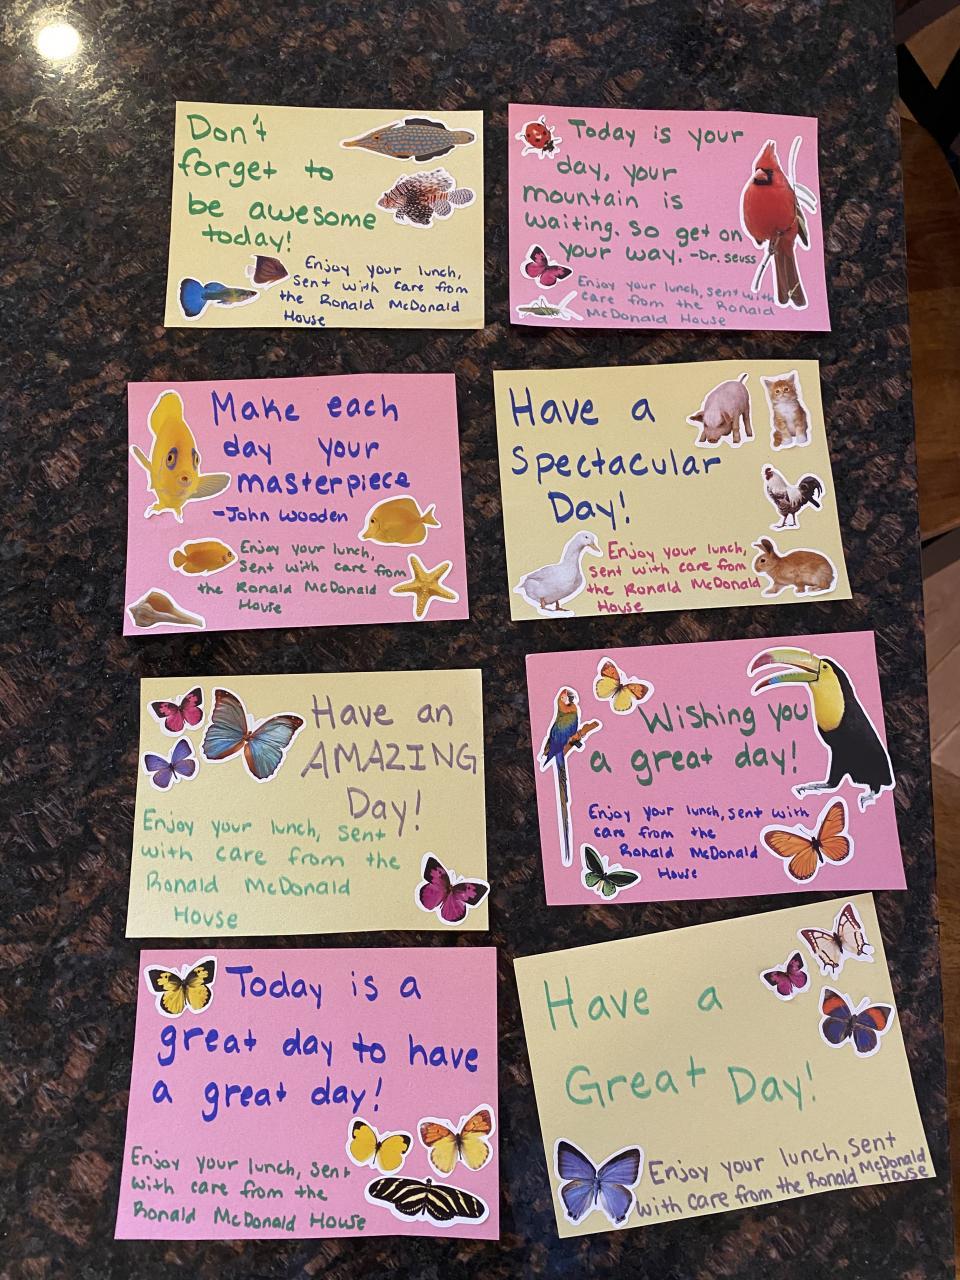 Don't
forget to
be awesome
today!
Enjoy your lunch,
sent with care from
the Ronald McDonald
House
Today is your
day, your
mountain is
waiting. So get on
your way. -Dr. Seuss
Enjoy your lunch, sent with
care from the Ronald
McDonald House
Make each
day your
masterpiece
-John Wooden
Enjoy your lunch,
sent with care from
the Ronald McDonald
House
Have a
Spectacular
Day!
Enjoy your lunch,
sent with care from
the Ronald McDonald
House
Have an
AMAZING
Day!
Enjoy your lunch, sent
with care from the
Ronald McDonald
House
Wishing you
a great day!
Enjoy your lunch, sent with
care from the
Ronald McDonald
House
Today is a
great day to have
a great day!
Enjoy your lunch, sent
with care from the
Ronald McDonald House
Have a
Great Day!
Enjoy your lunch, sent
with care from the Ronald McDonald
House